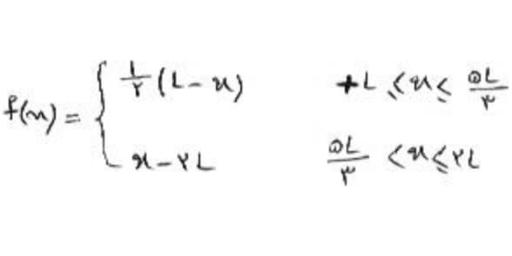 f(x) = { ۱/۲ (L - x)    +L ≤ x ≤ ۵L/۳
x - ۲L    ۵L/۳ < x ≤ ۲L